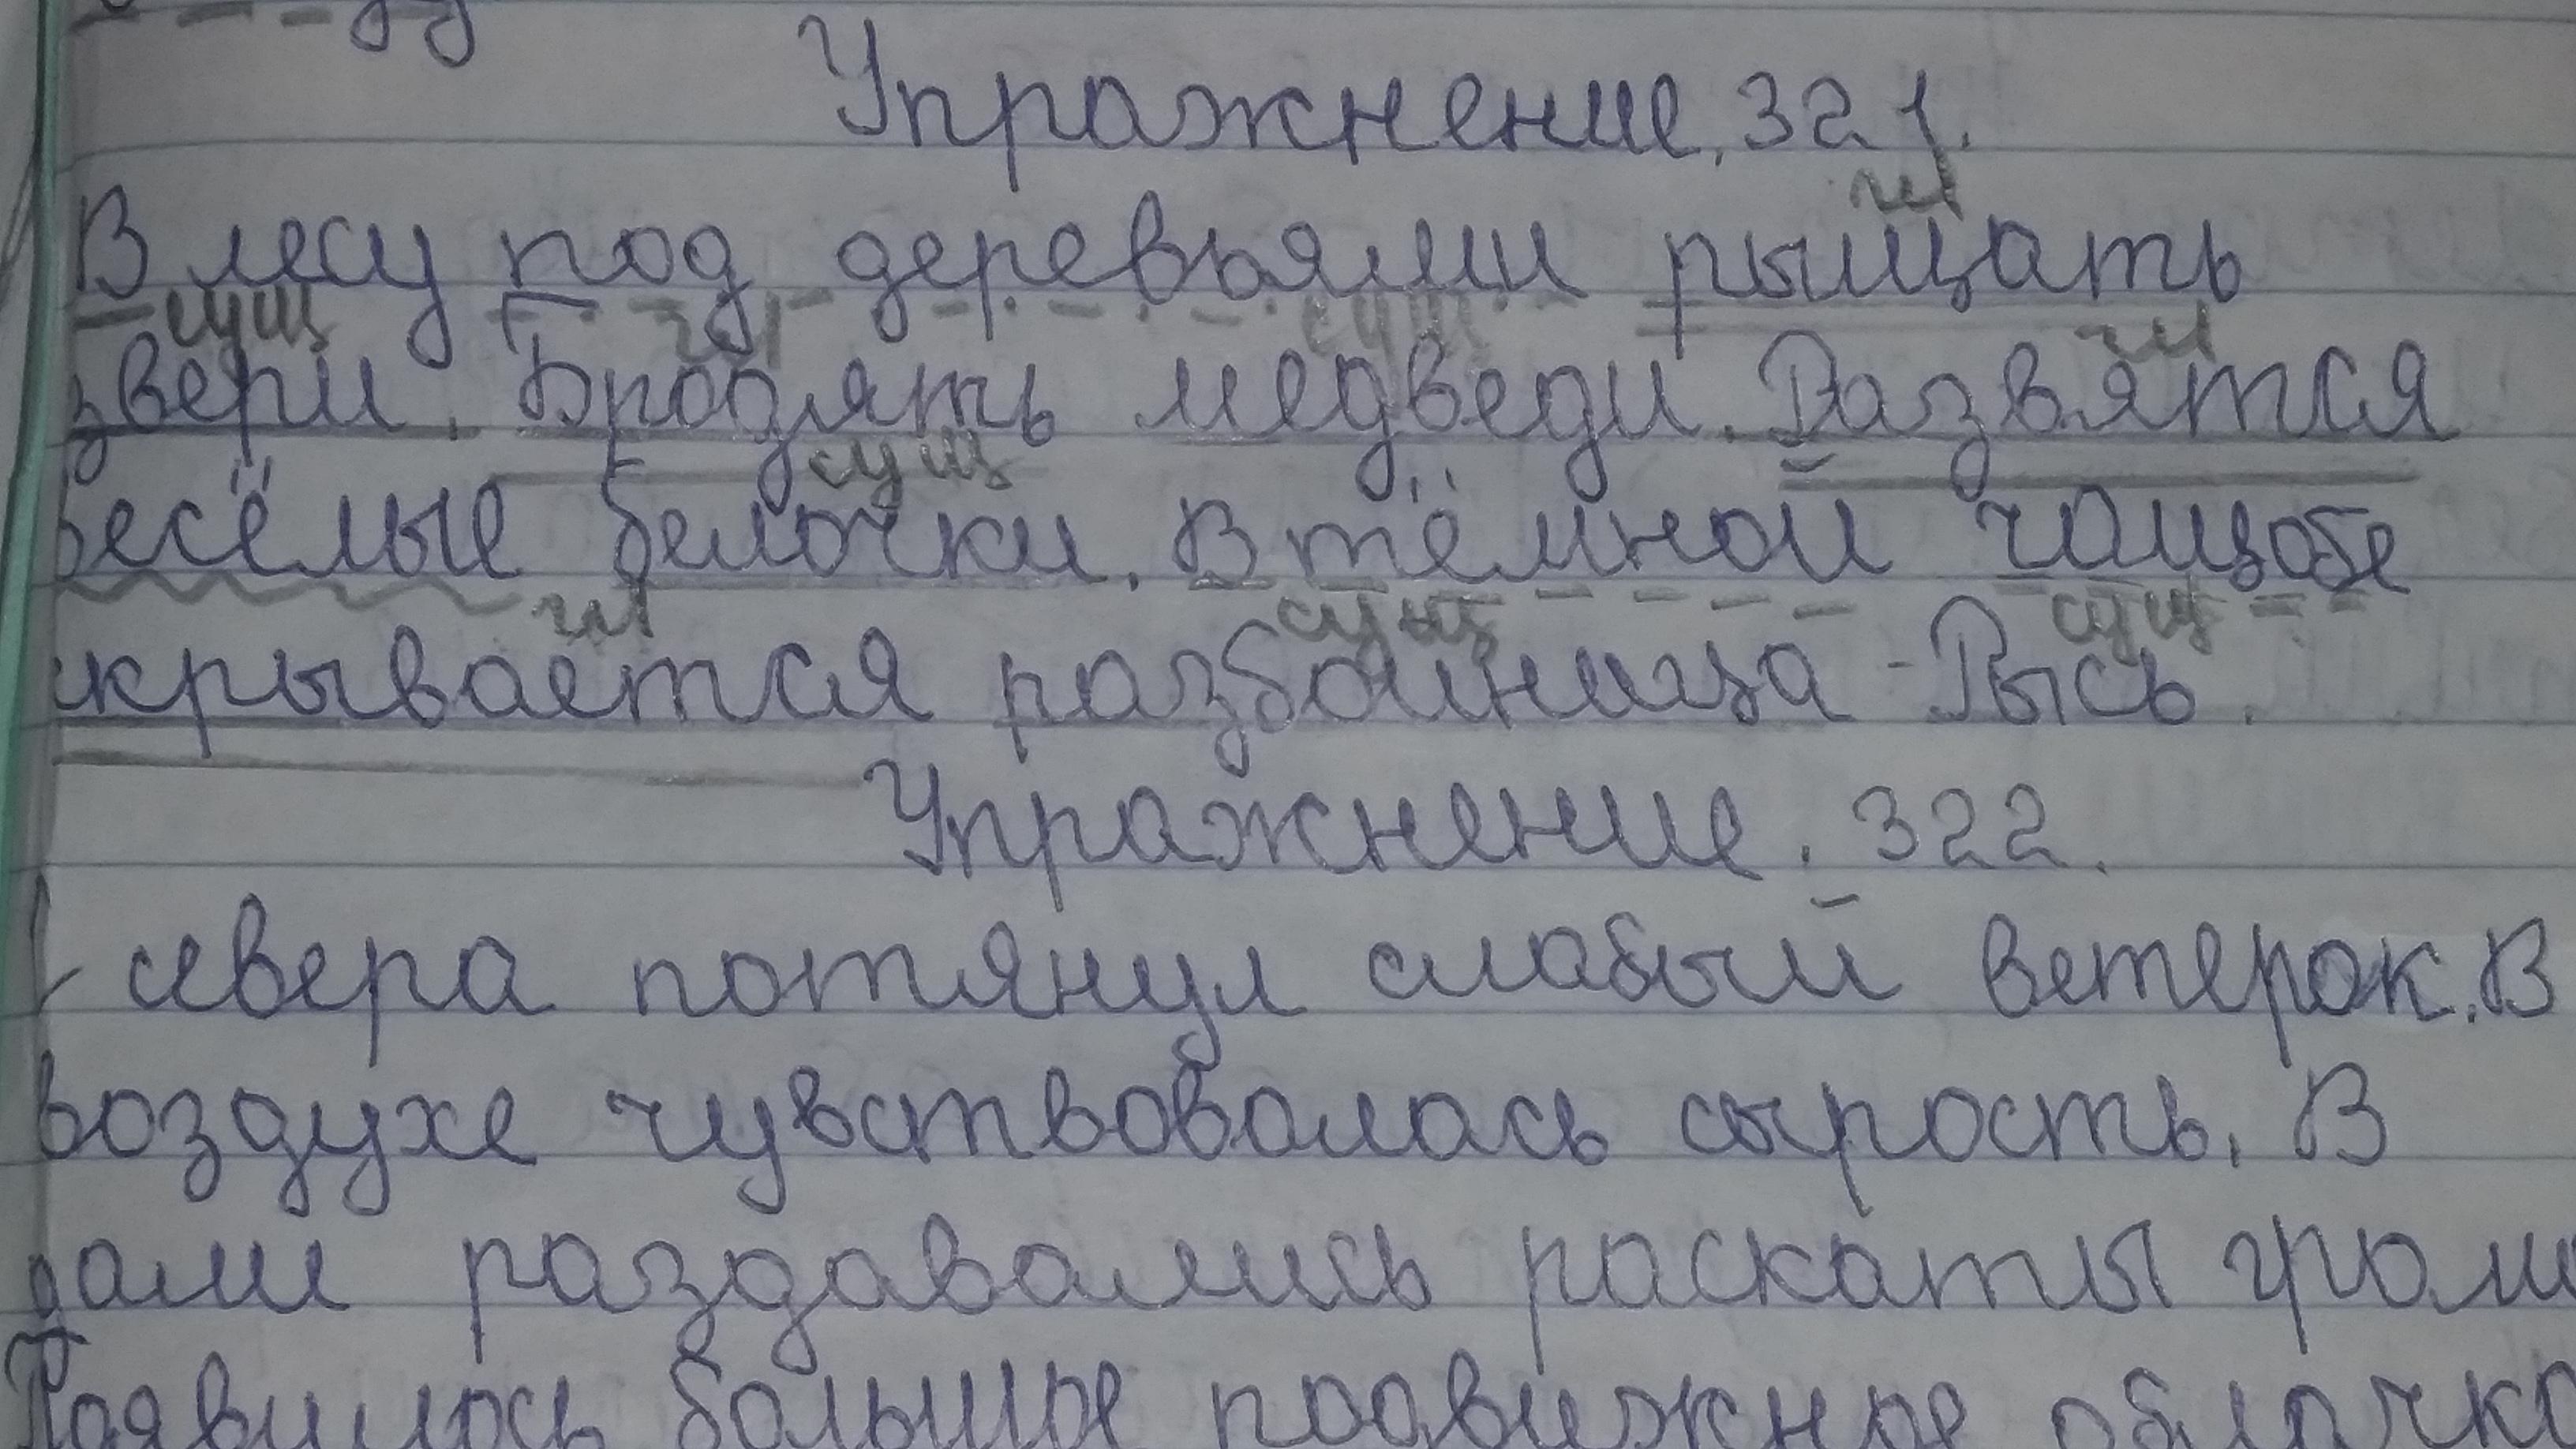 Упражнение. 321.
гл
В лесу под деревьями рыщать
сущ гл сущ гл
звери. Бродлять медведи. Развятся
сущ
весёлые белочки. В тёмной
гл сущ сущ
скрывается разбойница - Рысь.
Упражнение. 322.
севера потянул слабый ветерок. В
воздухе чувствовалась сырость. В
дали раздавались раскаты гром
Появилось большое подвижное облачко